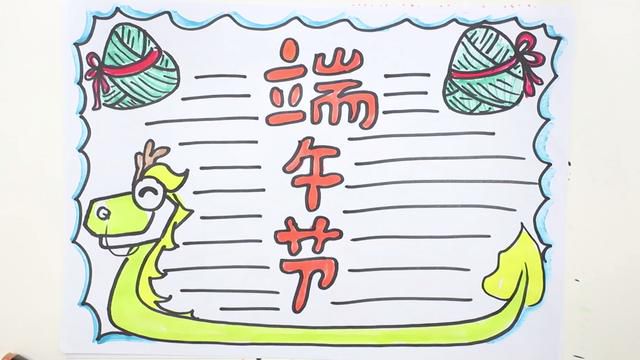 端
午
节